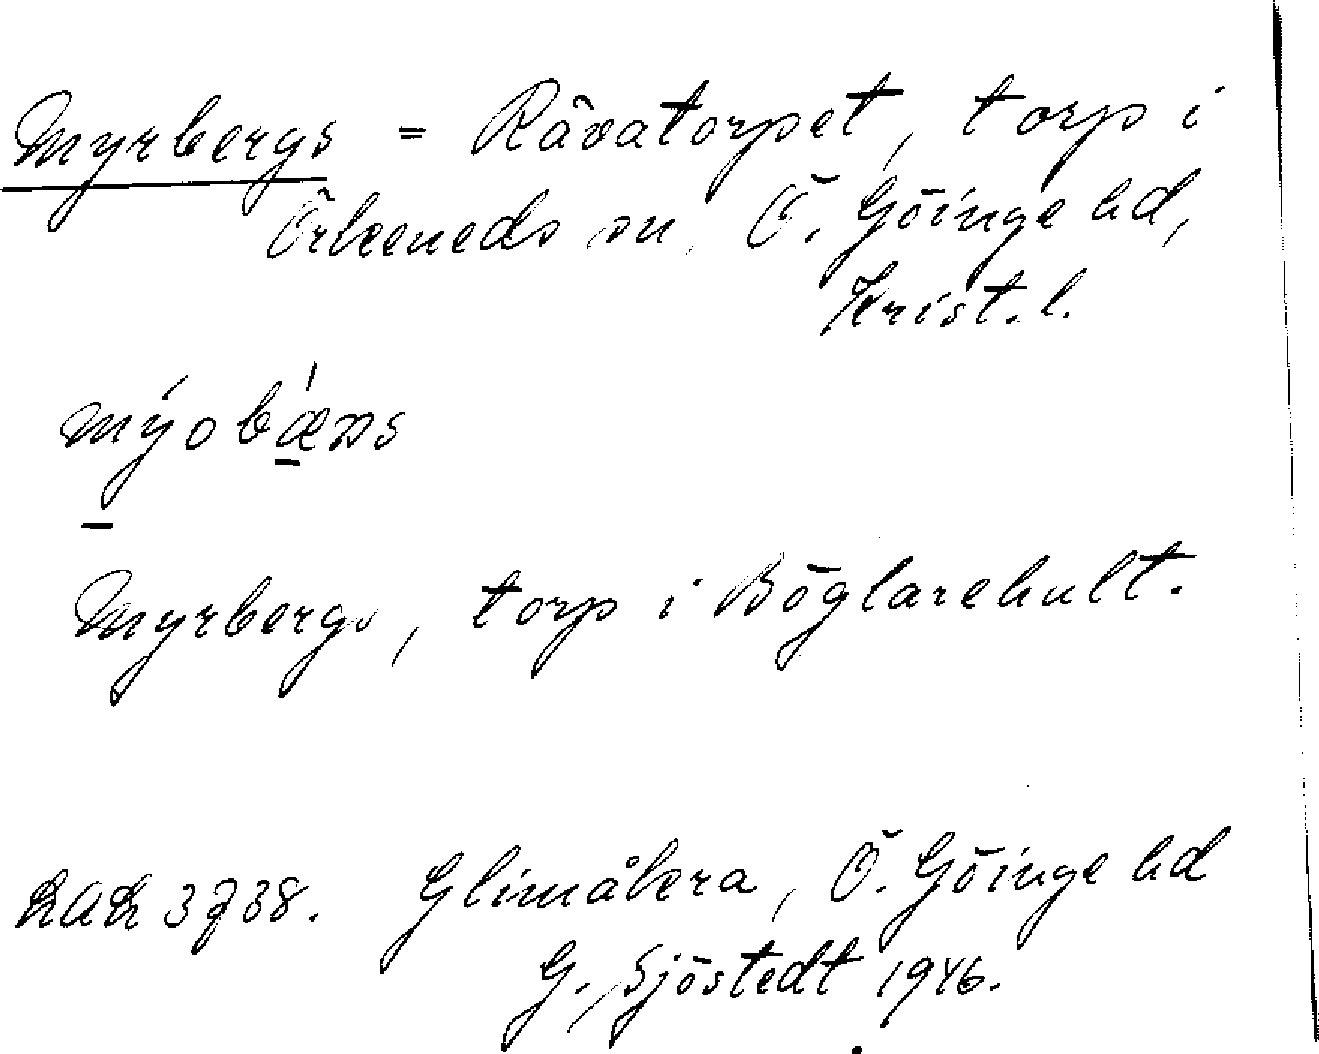 Myrbergs = Rävatorpet, torp i
Örkeneds sn, Ö. Göinge hd,
Krist. l.
Myrbergs, torp i Böglarehult.
RAK 3738. Glimåkra, Ö. Göinge hd
G. Sjöstedt 1946.